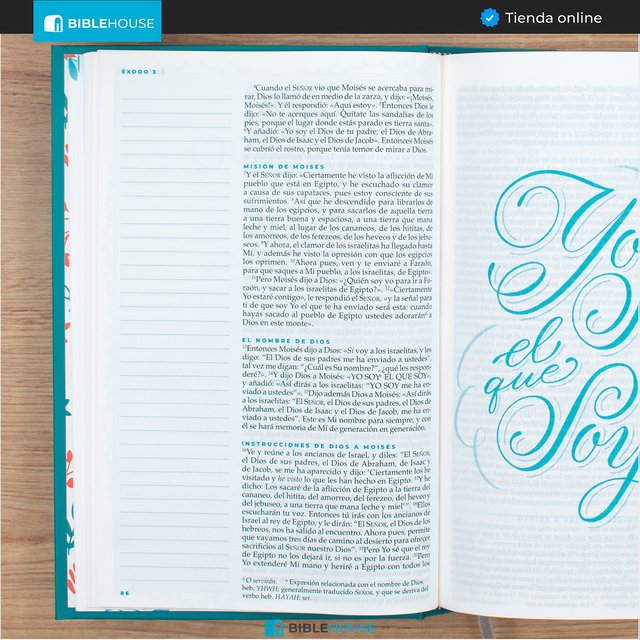 BIBLEHOUSE
Tienda online
ÉXODO 3
⁴Cuando el SEÑOR vio que Moisés se acercaba para mi-
rar, Dios lo llamó de en medio de la zarza, y dijo: «¡Moisés,
Moisés!». Y él respondió: «Aquí estoy». ⁵Entonces Dios le
dijo: «No te acerques aquí. Quítate las sandalias de los
pies, porque el lugar donde estás parado es tierra santa».
⁶Y añadió: «Yo soy el Dios de tu padre, el Dios de Abra-
ham, el Dios de Isaac y el Dios de Jacob». Entonces Moisés
se cubrió el rostro, porque tenía temor de mirar a Dios.
MISIÓN DE MOISÉS
⁷Y el SEÑOR dijo: «Ciertamente he visto la aflicción de Mi
pueblo que está en Egipto, y he escuchado su clamor
a causa de sus capataces, pues estoy consciente de sus
sufrimientos. ⁸Así que he descendido para librarlos de
mano de los egipcios, y para sacarlos de aquella tierra
a una tierra buena y espaciosa, a una tierra que mana
leche y miel, al lugar de los cananeos, de los hititas, de
los amorreos, de los ferezeos, de los heveos y de los jebu-
seos. ⁹Y ahora, el clamor de los israelitas ha llegado hasta
Mí, y además he visto la opresión con que los egipcios
los oprimen. ¹⁰Ahora pues, ven y te enviaré a Faraón,
para que saques a Mi pueblo, a los israelitas, de Egipto».
¹¹Pero Moisés dijo a Dios: «¿Quién soy yo para ir a Fa-
raón, y sacar a los israelitas de Egipto?». ¹²«Ciertamente
Yo estaré contigo», le respondió el SEÑOR, «y la señal para
ti de que soy Yo el que te ha enviado será esta: cuando
hayas sacado al pueblo de Egipto ustedes adorarán a
Dios en este monte».
EL NOMBRE DE DIOS
¹³Entonces Moisés dijo a Dios: «Si voy a los israelitas, y les
digo: “El Dios de sus padres me ha enviado a ustedes”,
tal vez me digan: “¿Cuál es Su nombre?”, ¿qué les respon-
deré?». ¹⁴Y dijo Dios a Moisés: «YO SOY EL QUE SOY»,
y añadió: «Así dirás a los israelitas: “YO SOY me ha en-
viado a ustedes”». ¹⁵Dijo además Dios a Moisés: «Así dirás
a los israelitas: “El SEÑOR, el Dios de sus padres, el Dios de
Abraham, el Dios de Isaac y el Dios de Jacob, me ha en-
viado a ustedes”. Este es Mi nombre para siempre, y con
él se hará memoria de Mí de generación en generación.
INSTRUCCIONES DE DIOS A MOISÉS
¹⁶Ve y reúne a los ancianos de Israel, y diles: “El SEÑOR,
el Dios de sus padres, el Dios de Abraham, de Isaac y
de Jacob, se me ha aparecido y dijo: ‘Ciertamente los he
visitado y he visto lo que les han hecho en Egipto. ¹⁷Y he
dicho: Los sacaré de la aflicción de Egipto a la tierra del
cananeo, del hitita, del amorreo, del ferezeo, del heveo y
del jebuseo, a una tierra que mana leche y miel’”. ¹⁸Ellos
escucharán tu voz. Entonces tú irás con los ancianos de
Israel al rey de Egipto, y le dirán: “El SEÑOR, el Dios de los
hebreos, nos ha salido al encuentro. Ahora pues, permite
que vayamos tres días de camino al desierto para ofrecer
sacrificios al SEÑOR nuestro Dios”. ¹⁹Pero Yo sé que el rey
de Egipto no los dejará ir, si no es por la fuerza. ²⁰Pero
Yo extenderé Mi mano y heriré a Egipto con todos los
ᵃ O servirán. ᵇ Expresión relacionada con el nombre de Dios,
heb. YHWH, generalmente traducido SEÑOR, y que se deriva del
verbo heb. HAYAH: ser.
86
Yo
el
que
Soy
BIBLEHOUSE